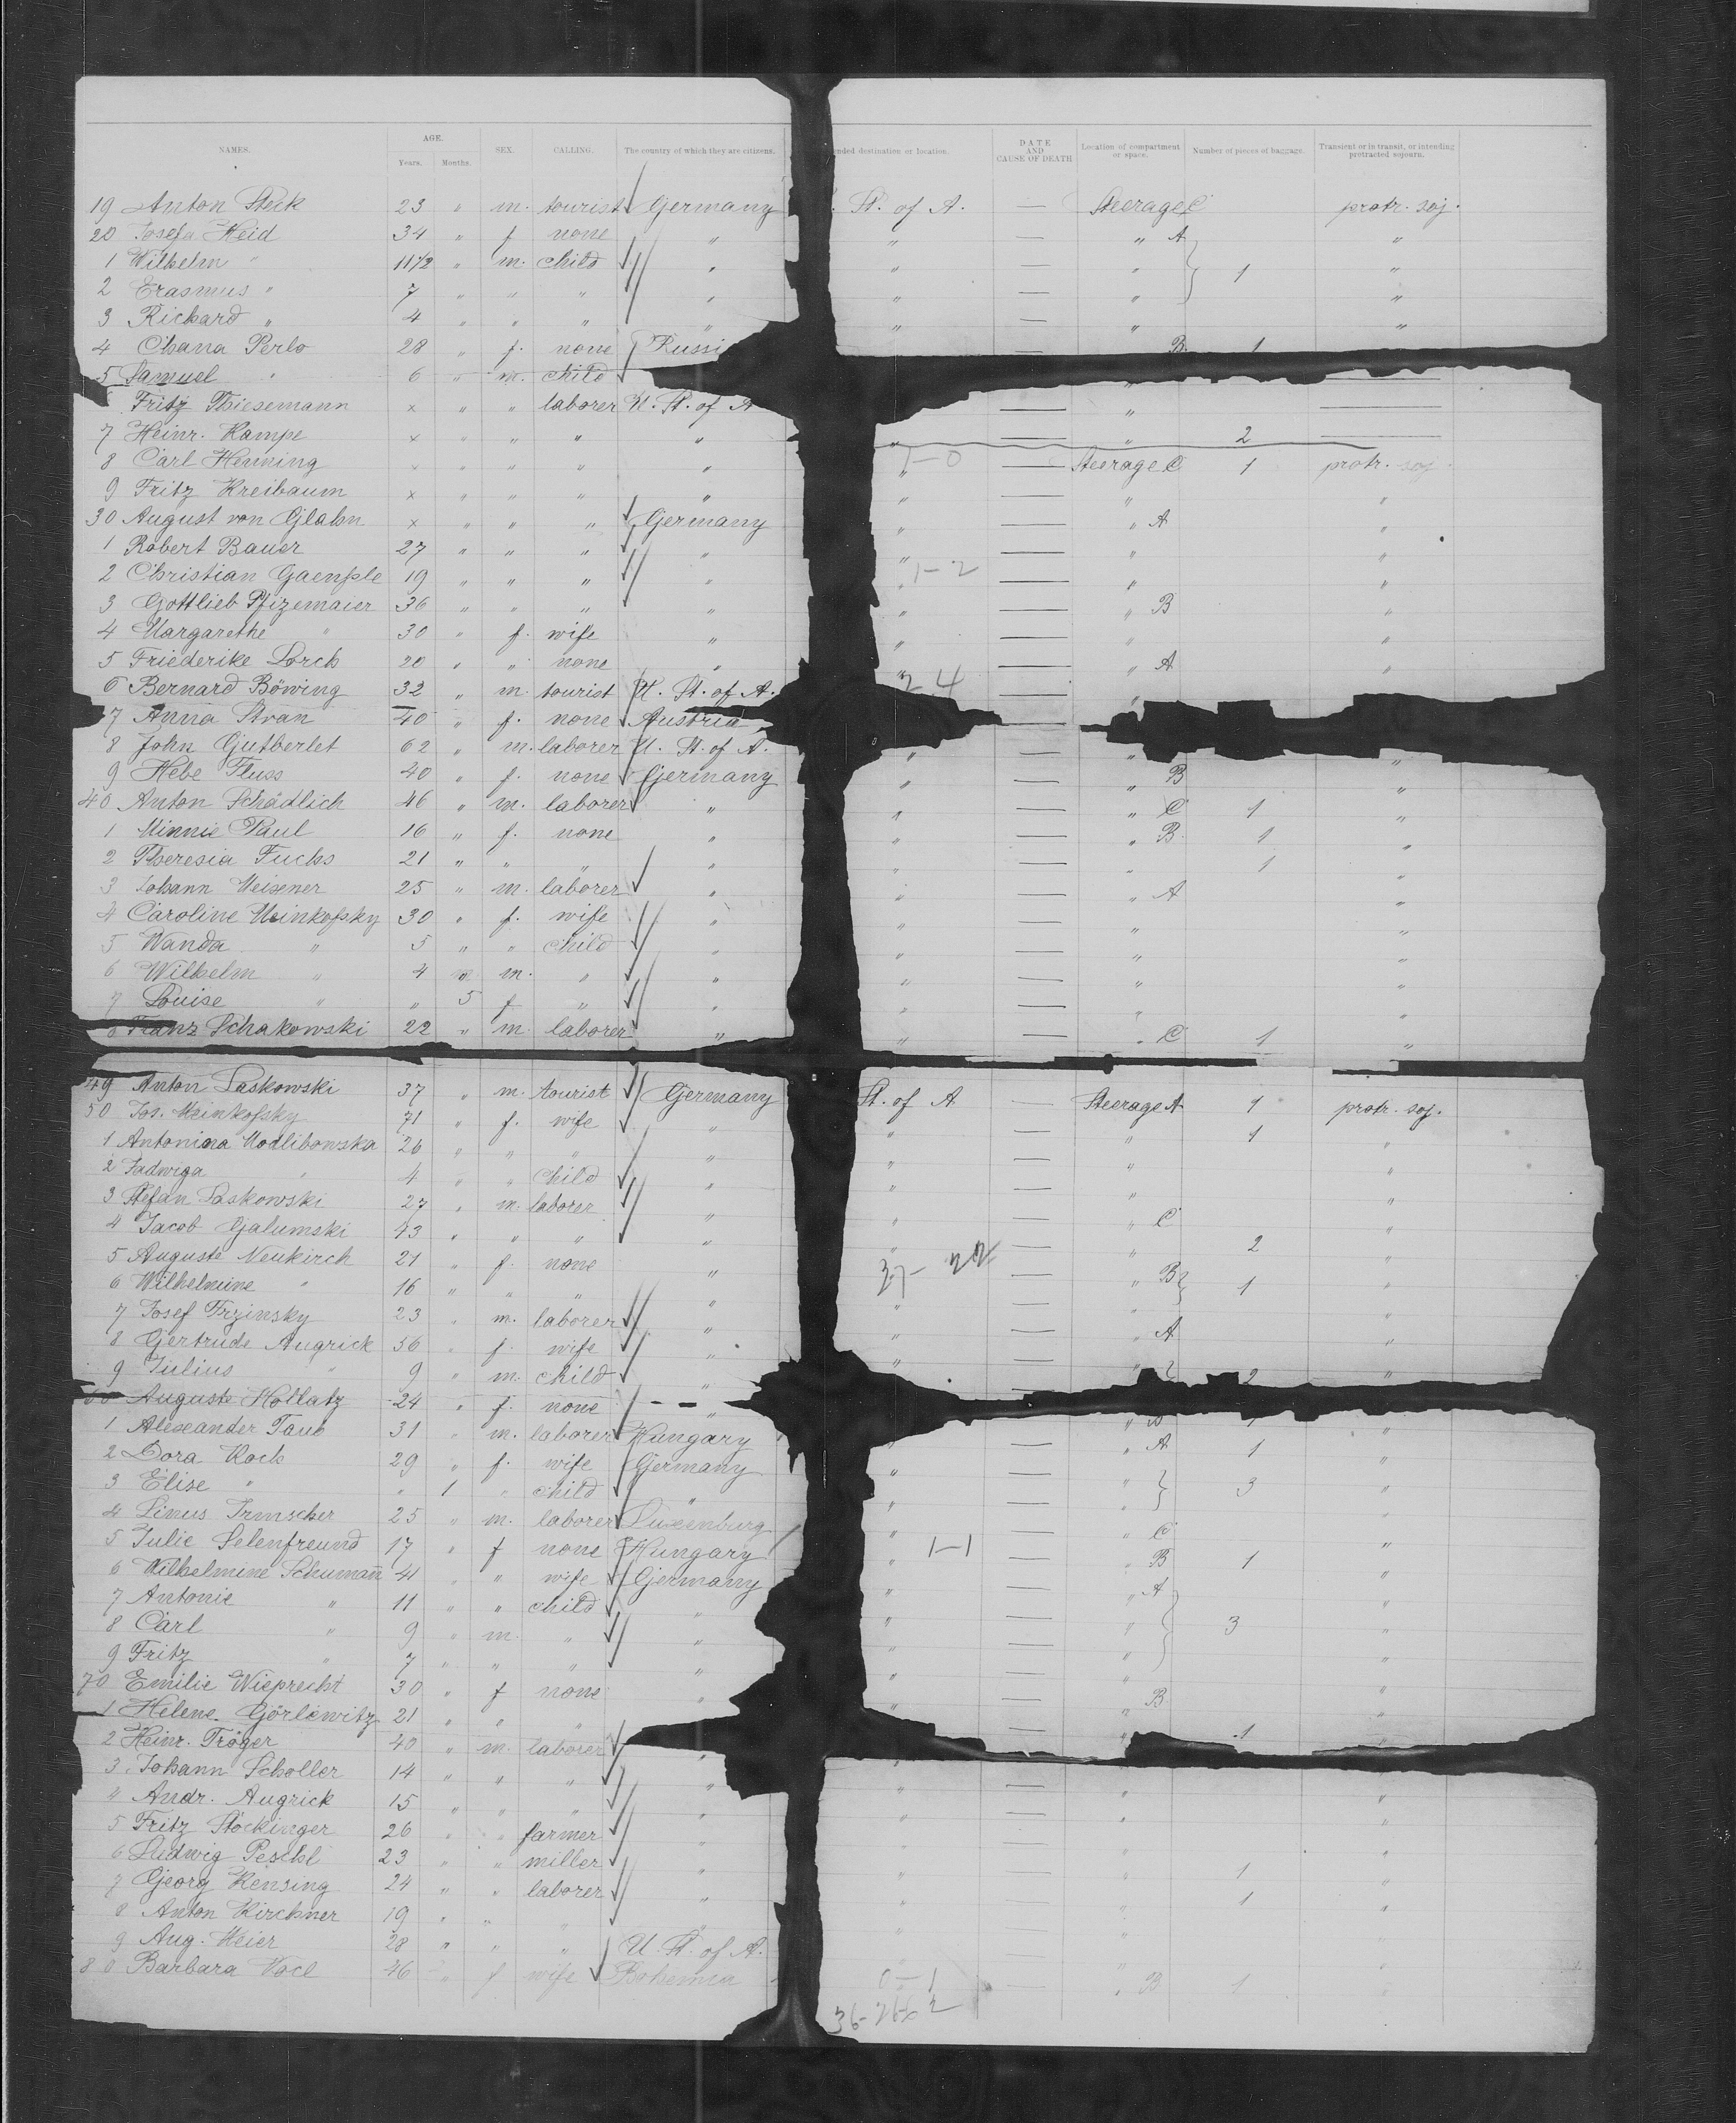 NAMES. AGE. Years. Months. SEX. CALLING. The country of which they are citizens. ended destination or location. DATE AND CAUSE OF DEATH Location of compartment or space. Number of pieces of baggage. Transient or in transit, or intending protracted sojourn.
19 Anton Steik 23 " m. tourist Germany St. of A. — Steerage C protr. soj.
20 Josefa Heid 34 " f none " " — " A "
1 Wilhelm " 11 1/2 " m. child " " — " 1 "
2 Erasmus " 7 " " " " " — " "
3 Richard " 4 " " " " " — " "
4 Chana Perlo 28 " f. none Russi — B. 1
5 Samuel " 6 " m. child "
6 Fritz Thiesemann × " " laborer U. St. of A — " —
7 Heinr. Kampe × " " " " " — " 2 —
8 Carl Henning × " " " " " 1-0 — Steerage C 1 protr. soj.
9 Fritz Kreibaum × " " " " " — " "
30 August von Glahn × " " " Germany " — " A "
1 Robert Bauer 27 " " " " " — " "
2 Christian Gaenfsle 19 " " " " " 1-2 — " "
3 Gottlieb Pfizemaier 36 " " " " " — " B "
4 Margarethe " 30 " f. wife " " — " "
5 Friederike Lorch 20 " " none " " — " A "
6 Bernard Böwing 32 " m. tourist U. St. of A. 2 4 — "
7 Anna Stran 40 " f. none Austria —
8 John Gutberlet 62 " m. laborer U. St. of A. " — " "
9 Hebe Fluss 40 " f. none Germany " — " B "
40 Anton Schädlich 46 " m. laborer " " — " C 1 "
1 Minnie Paul 16 " f. none " " — " B 1 "
2 Theresia Fuchs 21 " " " " " — " 1 "
3 Johann Meisener 25 " m. laborer " " — " A "
4 Caroline Meinkofsky 30 " f. wife " " — " "
5 Wanda " 5 " " child " " — " "
6 Wilhelm " 4 " m. " " " — " "
7 Louise " " 5 f " " " — " "
8 Franz Schakowski 22 " m. laborer " " — " C 1 "
49 Anton Laskowski 37 " m. tourist Germany St. of A — Steerage A 1 protr. soj.
50 Jos. Meinkofsky 71 " f. wife " " — " 1 "
1 Antonina Modlibowska 26 " " " " " — " "
2 Jadwiga " 4 " " child " " — " "
3 Stefan Laskowski 27 " m. laborer " " — " C "
4 Jacob Galumski 43 " " " " " — " 2 "
5 Auguste Neukirch 21 " f. none " 22 — " B 1 "
6 Wilhelmine " 16 " " " " " — " "
7 Josef Trzinsky 23 " m. laborer " " — " A "
8 Gertrude Augrick 56 " f. wife " " — " 2 "
9 Julius " 9 " m. child "
60 Auguste Hollatz 24 " f. none " " 1 "
1 Alexander Taub 31 " m. laborer Hungary " — " A 1 "
2 Dora Koch 29 " f. wife Germany " — " 3 "
3 Elise " " 1 " child " " — " "
4 Linus Irmscher 25 " m. laborer Luxenburg " — " C "
5 Julie Selenfreund 17 " f none Hungary " 1-1 — " B 1 "
6 Wilhelmine Schumann 41 " " wife Germany " — " A "
7 Antonie " 11 " " child " " — " 3 "
8 Carl " 9 " m. " " " — " "
9 Fritz " 7 " " " " " — " "
70 Emilie Wieprecht 30 " f none " " — " B "
1 Helene Görlewitz 21 " " " " — " 1 "
2 Heinr. Tröger 40 " m. laborer "
3 Johann Scholler 14 " " " " " — " "
4 Andr. Augrick 15 " " " " " — " "
5 Fritz Stöckinger 26 " " farmer " " — " "
6 Ludwig Peschl 23 " " miller " " — " 1 "
7 Georg Kensing 24 " " laborer " " — " 1 "
8 Anton Kirchner 19 " " " " " — " "
9 Aug. Meier 28 " " " U. St. of A. " — " "
80 Barbara Vocl 46 " f wife Bohemia 0-1 — " B 1 "